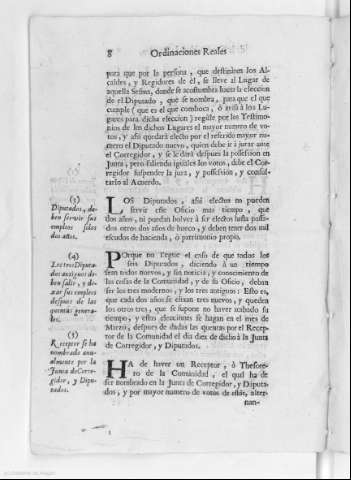 8 Ordinaciones Reales
para que por la persona, que destinaren los Al-
caldes, y Regidores de él, se lleve al Lugar de
aquella Sesma, donde se acostumbra hacer la eleccion
de el Diputado, que se nombra, para que el que
cumple (que es el que comboca, ò avisa à los Lu-
gares para dicha eleccion) regule por los Testimo-
nios de los dichos Lugares el mayor numero de vo-
tos, y assi quedarà electo por el referido mayor nu-
mero el Diputado nuevo, quien debe ir à jurar ante
el Corregidor, y se le darà despues la possession en
Junta, pero saliendo iguales los votos, debe el Cor-
regidor suspender la jura, y possession, y consul-
tarlo al Acuerdo.
(3)
Diputados, de-
ben servir sus
empleos solos
dos años.
LOS Diputados, assi electos no pueden
servir este Oficio mas tiempo, que
dos años, ni puedan bolver à ser electos hasta passa-
dos otros dos años de hueco, y deben tener dos mil
escudos de hacienda, ò patrimonio propio.
(4)
Los tres Diputa-
dos antiguos de-
ben salir, y de-
xar sus empleos
despues de las
quentas genera-
les.
POrque no llegue el caso de que todos los
seis Diputados, diciendo à un tiempo
sean todos nuevos, y sin noticia, y conocimiento de
las cosas de la Comunidad, y de su Oficio, deban
ser los tres modernos, y los tres antiguos: Esto es,
que cada dos años se elixan tres nuevos, y queden
los otros tres, que se supone no haver acabado su
tiempo, y estas elecciones se hagan en el mes de
Marzo, despues de dadas las quentas por el Recep-
tor de la Comunidad el dia diez de dicho à la Junta
de Corregidor, y Diputados.
(5)
Receptor se ha
nombrado anu-
almente por la
Junta de Corre-
gidor, y Dipu-
tados.
HA de haver un Receptor, ò Thesore-
ro de la Comunidad, el qual ha de
ser nombrado en la Junta de Corregidor, y Diputa-
dos, y por mayor numero de votos de estos, alter-
nan-